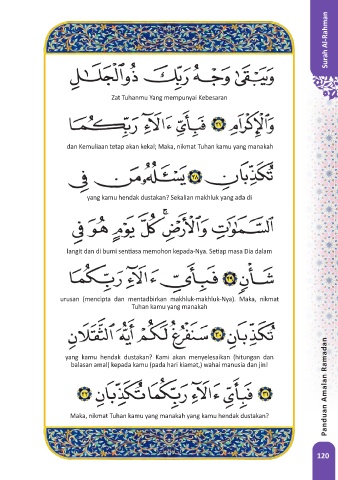 Surah Al-Rahman
وَيَبْقَىٰ وَجْهُ رَبِّكَ ذُو ٱلْجَلَـٰلِ
Zat Tuhanmu Yang mempunyai Kebesaran
وَٱلْإِكْرَامِ ٢٧ فَبِأَىِّ ءَالَآءِ رَبِّكُمَا
dan Kemuliaan tetap akan kekal; Maka, nikmat Tuhan kamu yang manakah
تُكَذِّبَانِ ٢٨ يَسْـَٔلُهُۥ مَن فِى
yang kamu hendak dustakan? Sekalian makhluk yang ada di
ٱلسَّمَـٰوَٰتِ وَٱلْأَرْضِ ۚ كُلَّ يَوْمٍ هُوَ فِى
langit dan di bumi sentiasa memohon kepada-Nya. Setiap masa Dia dalam
شَأْنٍ ٢٩ فَبِأَىِّ ءَالَآءِ رَبِّكُمَا
urusan (mencipta dan mentadbirkan makhluk-makhluk-Nya). Maka, nikmat
Tuhan kamu yang manakah
تُكَذِّبَانِ ٣٠ سَنَفْرُغُ لَكُمْ أَيُّهَ ٱلثَّقَلَانِ
yang kamu hendak dustakan? Kami akan menyelesaikan (hitungan dan
balasan amal) kepada kamu (pada hari kiamat,) wahai manusia dan jin!
٣١ فَبِأَىِّ ءَالَآءِ رَبِّكُمَا تُكَذِّبَانِ ٣٢
Maka, nikmat Tuhan kamu yang manakah yang kamu hendak dustakan?
Panduan Amalan Ramadan
120